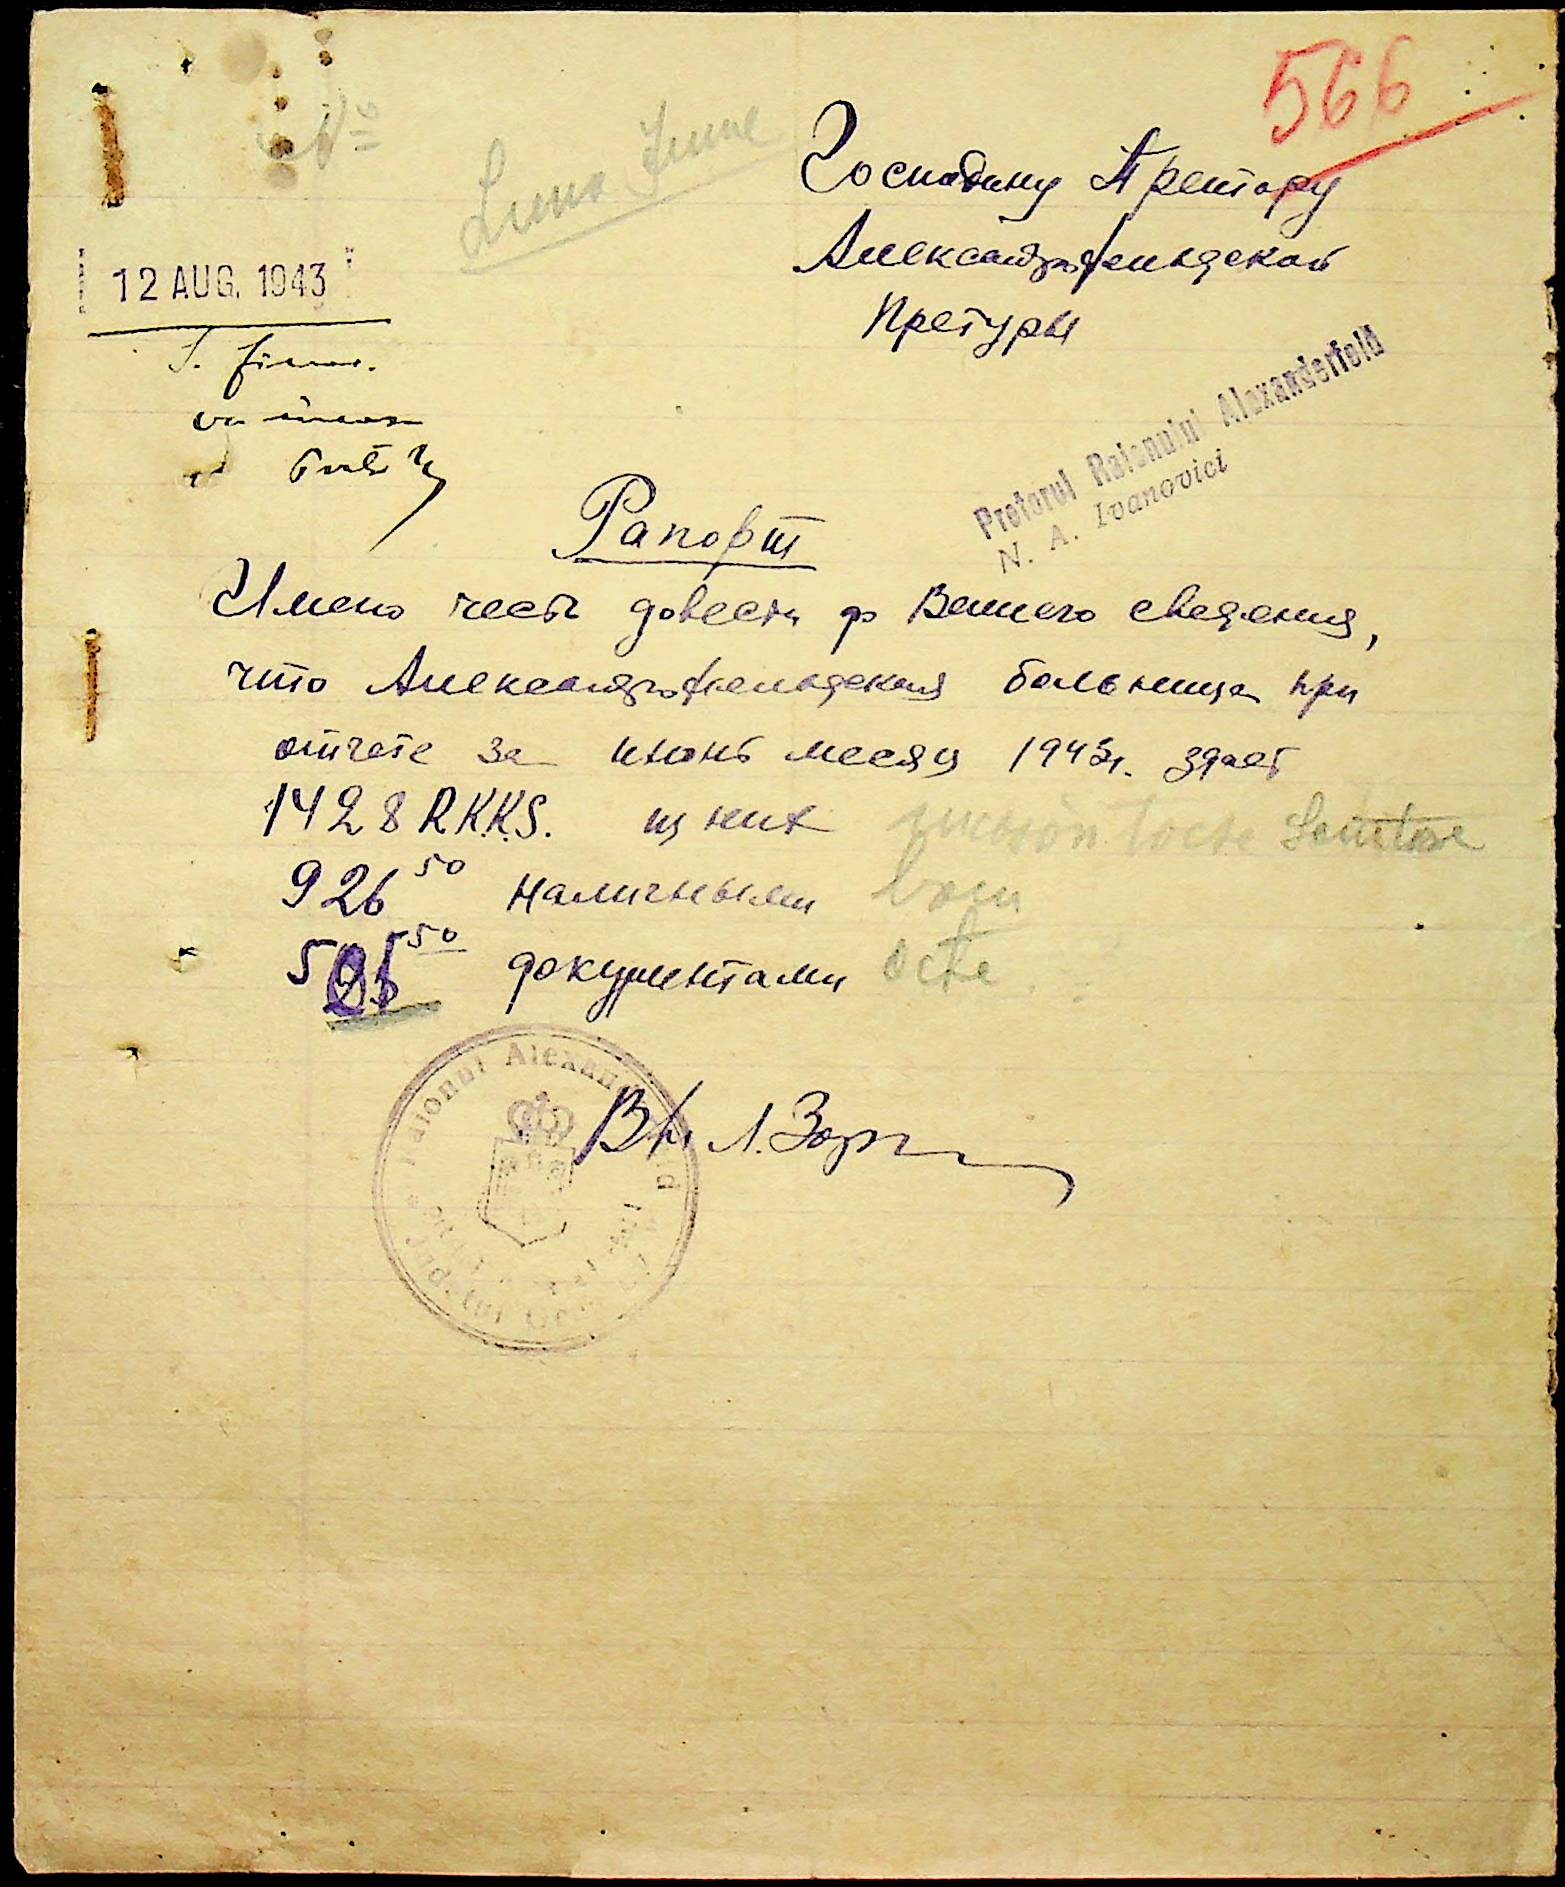 566
Luna June
Господину Претору
Александрфельдской
Претуры
12 AUG. 1943
S. financ.
va încasa
Pretorul Raionului Alexanderfeld
N. A. Ivanovici
Рапорт
Имею честь довести до Вашего сведения,
что Александрфельдская больница при
отчете за июнь месяц 1943г. здает
1428 R.K.K.S. из них
926 50 наличными bani
50 документами acte
Вр. Л. Зор
Raionul Alexanderfeld
Judetul